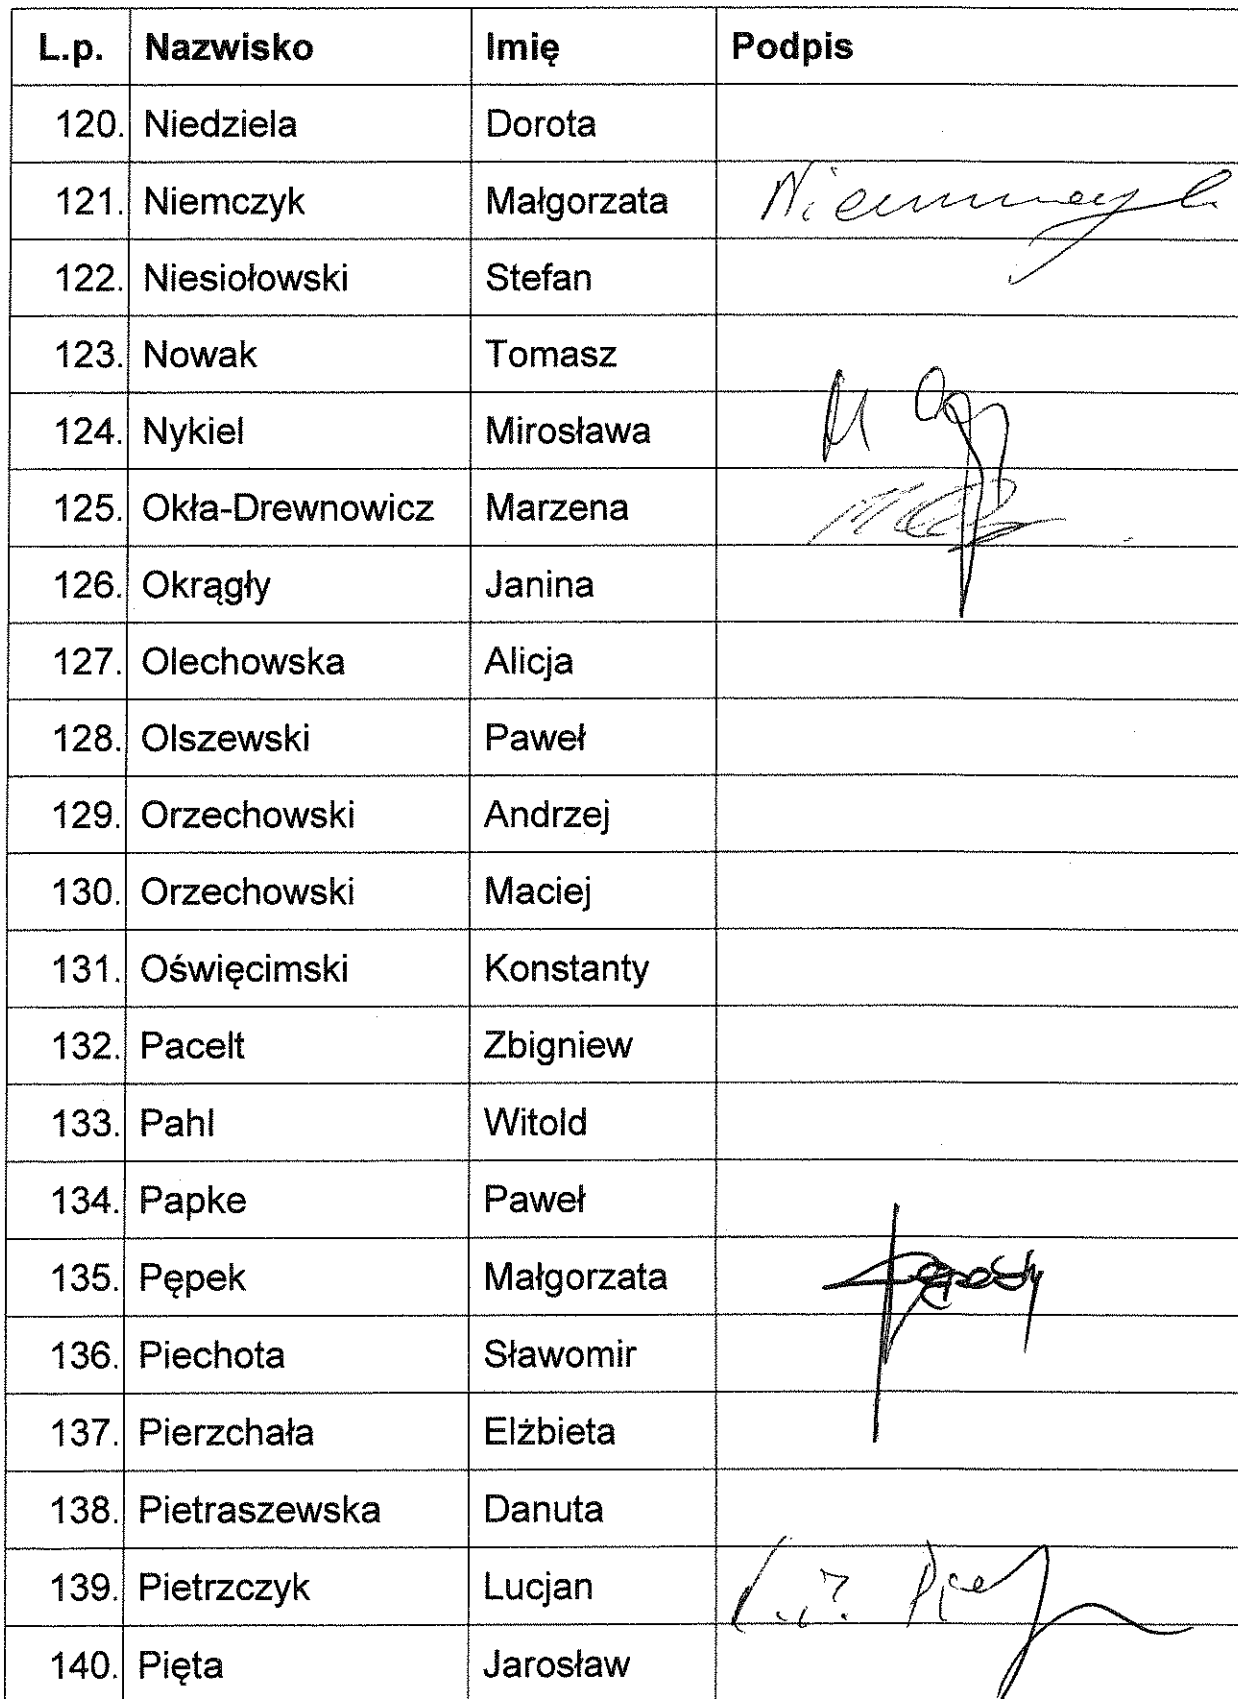 L.p. Nazwisko Imię Podpis
120. Niedziela Dorota
121. Niemczyk Małgorzata Niemczyk
122. Niesiołowski Stefan
123. Nowak Tomasz
124. Nykiel Mirosława
125. Okła-Drewnowicz Marzena
126. Okrągły Janina
127. Olechowska Alicja
128. Olszewski Paweł
129. Orzechowski Andrzej
130. Orzechowski Maciej
131. Oświęcimski Konstanty
132. Pacelt Zbigniew
133. Pahl Witold
134. Papke Paweł
135. Pępek Małgorzata
136. Piechota Sławomir
137. Pierzchała Elżbieta
138. Pietraszewska Danuta
139. Pietrzczyk Lucjan
140. Pięta Jarosław